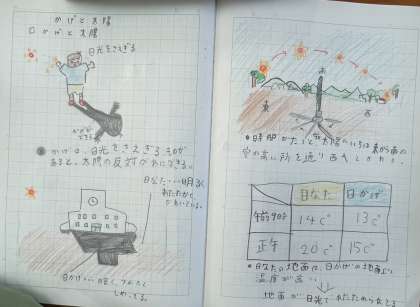 かげと太陽
かげと太陽
日光をさえぎる
かげができる
かげは、日光をさえぎるものが
あると、太陽の反対がわにできる。
日なた…明るく
あたたかく
かわいている。
日かげ…暗く、つめたく
しめっている。
時間がたつと、太陽のいちは東から南の
空の高い所を通り西
日なた 日かげ
午前9時 14C° 13C°
正午 20C° 15C°
日なたの地面は、日かげの地面より
温度が高い
地面が日光であたためられるから